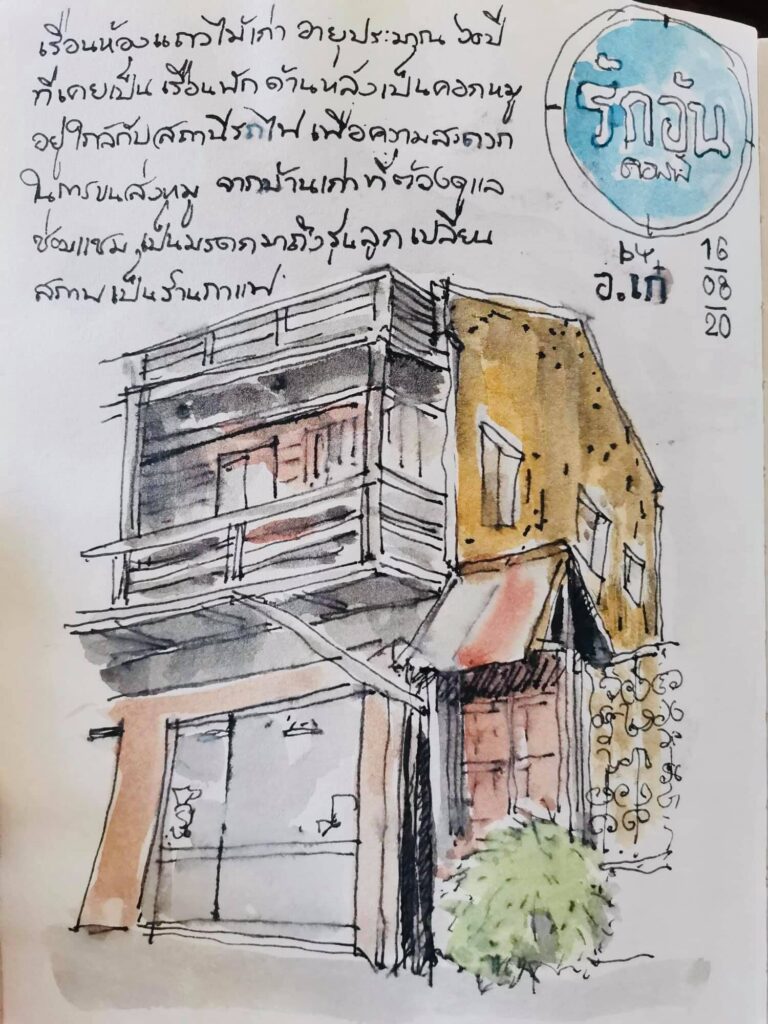 เรือนห้องแถวไม้เก่า อายุประมาณ ๖๐ปี
ที่เคยเป็น เรือนพัก ด้านหลังเป็นคอกหมู
อยู่ใกล้กับสถานีรถไฟ เพื่อความสะดวก
ในการขนส่งหมู จากบ้านเก่าที่ต้องดูแล
ซ่อมแซม เป็นมรดกมาถึงรุ่นลูก เปลี่ยน
สภาพเป็นร้านกาแฟ
รักอัน
คอฟฟี่
by
อ.เก๋
16
08
20